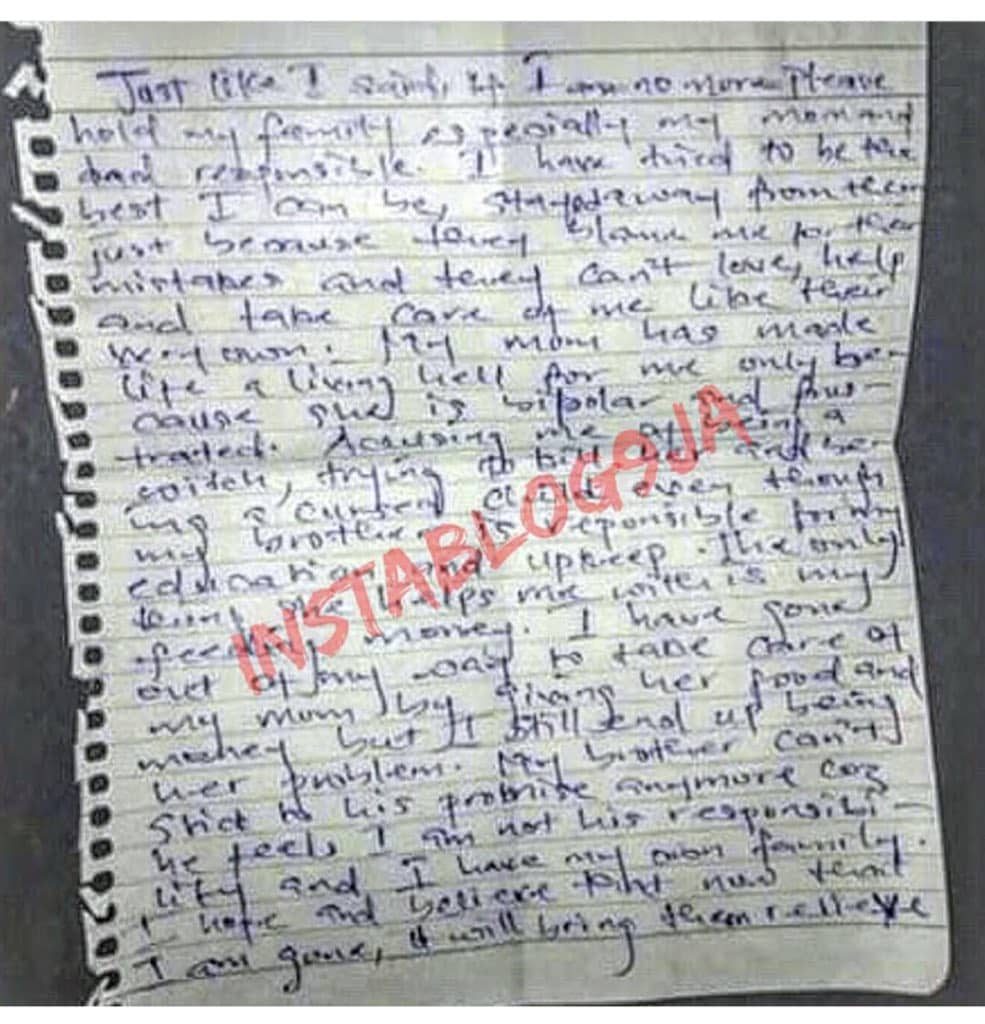 Just like I said, if I am no more please
hold my family especially my mom and
dad responsible. I have tried to be the
best I can be, stayed away from them
just because they blame me for their
mistakes and they can't love, help
and take care of me like their
very own. My mom has made
life a living hell for me only be-
cause she is bipolar and frus-
trated. Acusing me of being a
witch, trying to kill her and be-
ing a cursed child even though
my brother is reponsible for my
education and upkeep. The only
she helps me with is my
feeding money. I have gone
out of my way to take care of
my mom by giving her food and
money but I still end up being
her problem. My brother can't
stick to his promise anymore coz
he feels I am not his responsibi-
lity and I have my own family.
I hope and believe that now that
I am gone, it will bring them relieve
INSTABLOG9JA